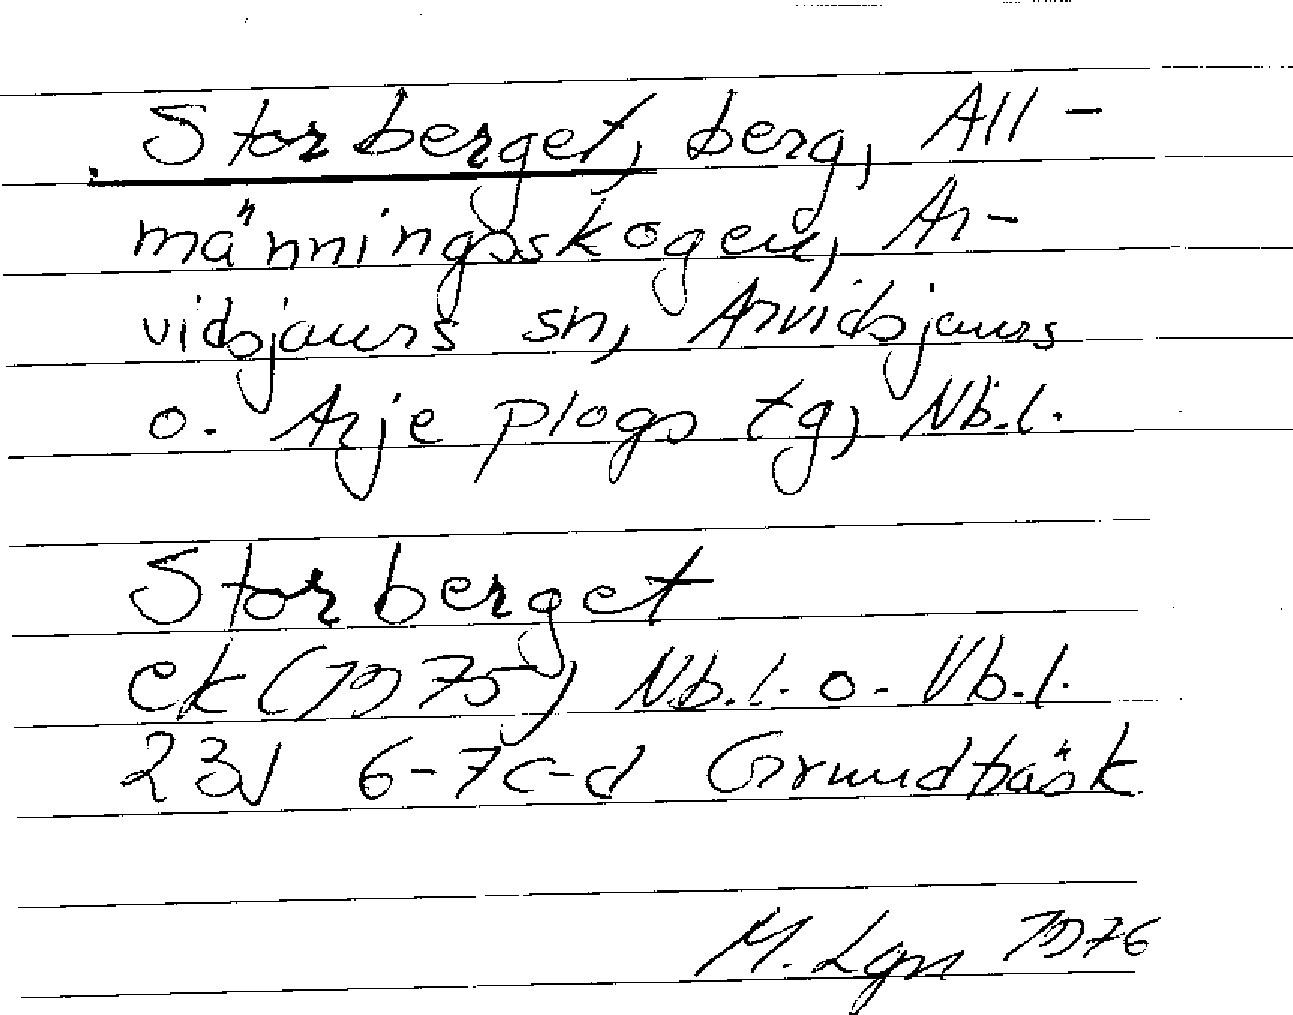 Storberget, berg, All-
männingsskogen, Ar-
vidsjaurs sn, Arvidsjaurs
o. Arjeplogs tg, Nb.l.
Storberget
ek (1975) Nb.l. o. Vb.l.
23J 6-7c-d Grundträsk
M. Lgn 1976